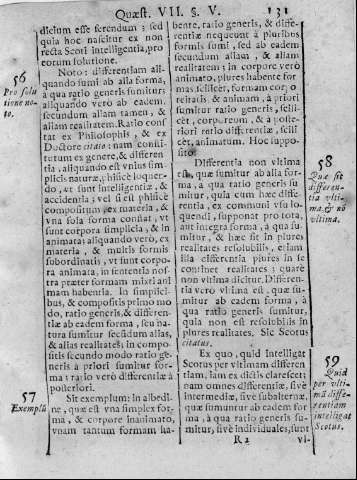 Quæst. VII. §. V. 131
dicium esse ferendum; sed
quia hoc nascitur ex non
recta Scoti intelligentia, pro
eorum solutione.
56
Pro solu
tione no-
to.
Noto: differentiam ali-
quando sumi ab alia forma,
à qua ratio generis sumitur;
aliquando verò ab eadem.
secundum aliam tamen, &
aliam realitatem. Ratio cons-
tat ex Philosophis, & ex
Doctore citato: nam consti-
tutum ex genere, & differen-
tia, aliquando est vnius sim-
plicis naturæ, phisicè loquen-
do, vt sunt intelligentiæ, &
accidentia; vel si est phisicè
compositum, ex materia, &
vna sola forma constat, vt
sunt corpora simplicia, & in-
animata: aliquando verò, ex
materia, & multis formis
subordinatis, vt sunt corpo-
ra animata, in sententia nos-
tra præter formam mixti ani
mam habentia. In simplici-
bus, & compositis primo mo-
do, ratio generis, & differen-
tiæ ab eadem forma, sua na-
tura sumitur secundum alias,
& alias realitates; in compo-
sitis secundo modo ratio gene-
ris à priori sumitur for-
ma: ratio verò differentiæ à
posteriori.
57
Exemplũ
Sit exemplum: in albedi-
ne, quæ est vna simplex for-
ma, & corpore inanimato,
vnam tantum formam ha-
bente, ratio generis, & diffe-
rentiæ nequeunt à pluribus
formis sumi, sed ab eadem
secundum aliam, & aliam
realitatem: in corpore verò
animato, plures habente for-
mas, scilicet, formam corpo
reitatis, & animam, à priori
sumitur ratio generis, scili-
cet, corporeum, & à poste-
riori ratio differentiæ, scili-
cet, animatum. Hoc suppo-
sito.
58
Quæ sit
differen-
tia vlti-
ma, & nõ
vltima.
Differentia non vltima
est, quæ sumitur ab alia for-
ma, à qua ratio generis su-
mitur, quia cum hæc diffe-
rentia, ex communi vsu lo-
quendi, supponat pro tota,
aut integra forma, à qua su-
mitur, & hæc sit in plures
realitates resolubilis, etiam
illa differentia plures in se
continet realitates: quare
non vltima dicitur. Differen-
tia verò vltima est, quæ su-
mitur ab eadem forma, à
qua ratio generis sumitur,
quia non est resolubilis in
plures realitates. Sic Scotus
citatus.
59
Quid
per vlti-
mã diffe-
rentiam
intelligat
Scotus.
Ex quo, quid intelligat
Scotus per vltimam differen
tiam, iam ex dictis claresci:
nam omnes differentiæ, sivè
intermediæ, sivè subalternæ,
quæ sumuntur ab eadem for
ma, à qua ratio generis su-
mitur, sivè individuales, sunt
R 2 vl-